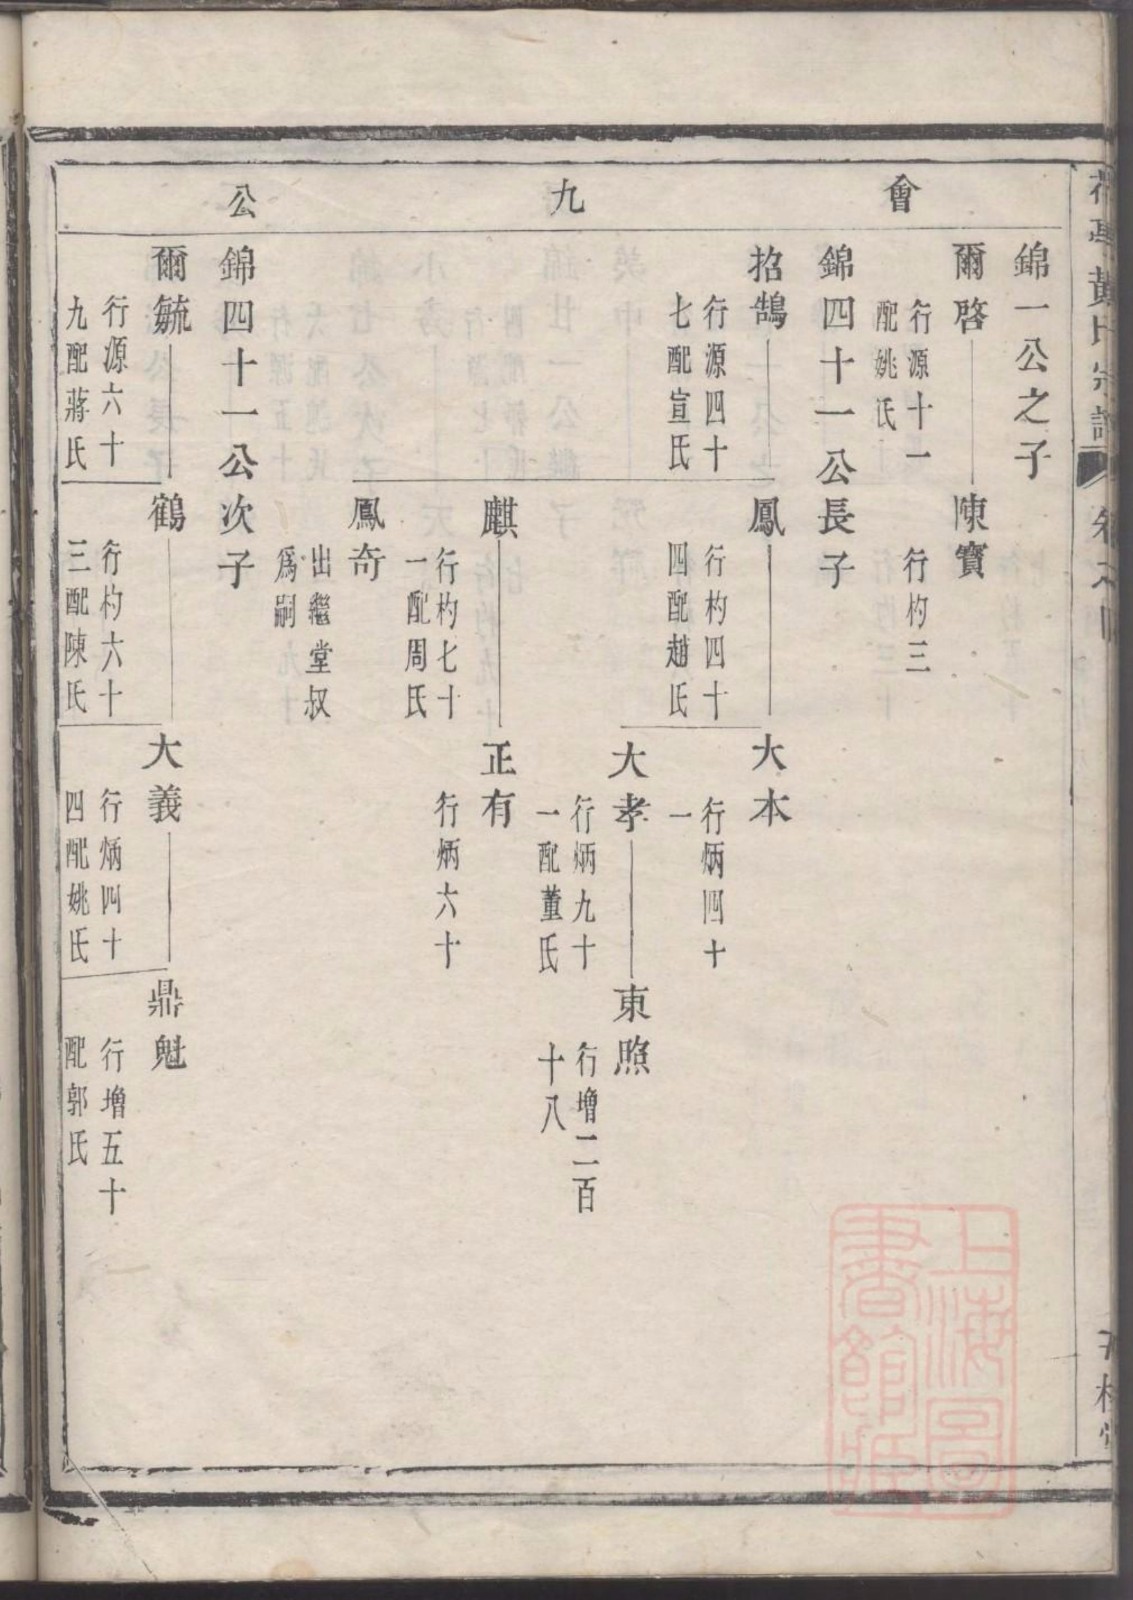 會九公
錦一公之子
爾啓
行源十一
配姚氏
陳寶
行杓三
錦四十一公長子
招鵠
行源四十
七配宣氏
鳳
行杓四十
四配趙氏
大本
行炳四十
一
大孝
行炳九十
一配董氏
東煦
行增二百
十八
麒
行杓七十
一配周氏
正有
行炳六十
鳳奇
出繼堂叔
爲嗣
錦四十一公次子
爾毓
行源六十
九配蔣氏
鶴
行杓六十
三配陳氏
大義
行炳四十
四配姚氏
鼎魁
行增五十
配郭氏
黃氏宗譜
上海圖
書館藏